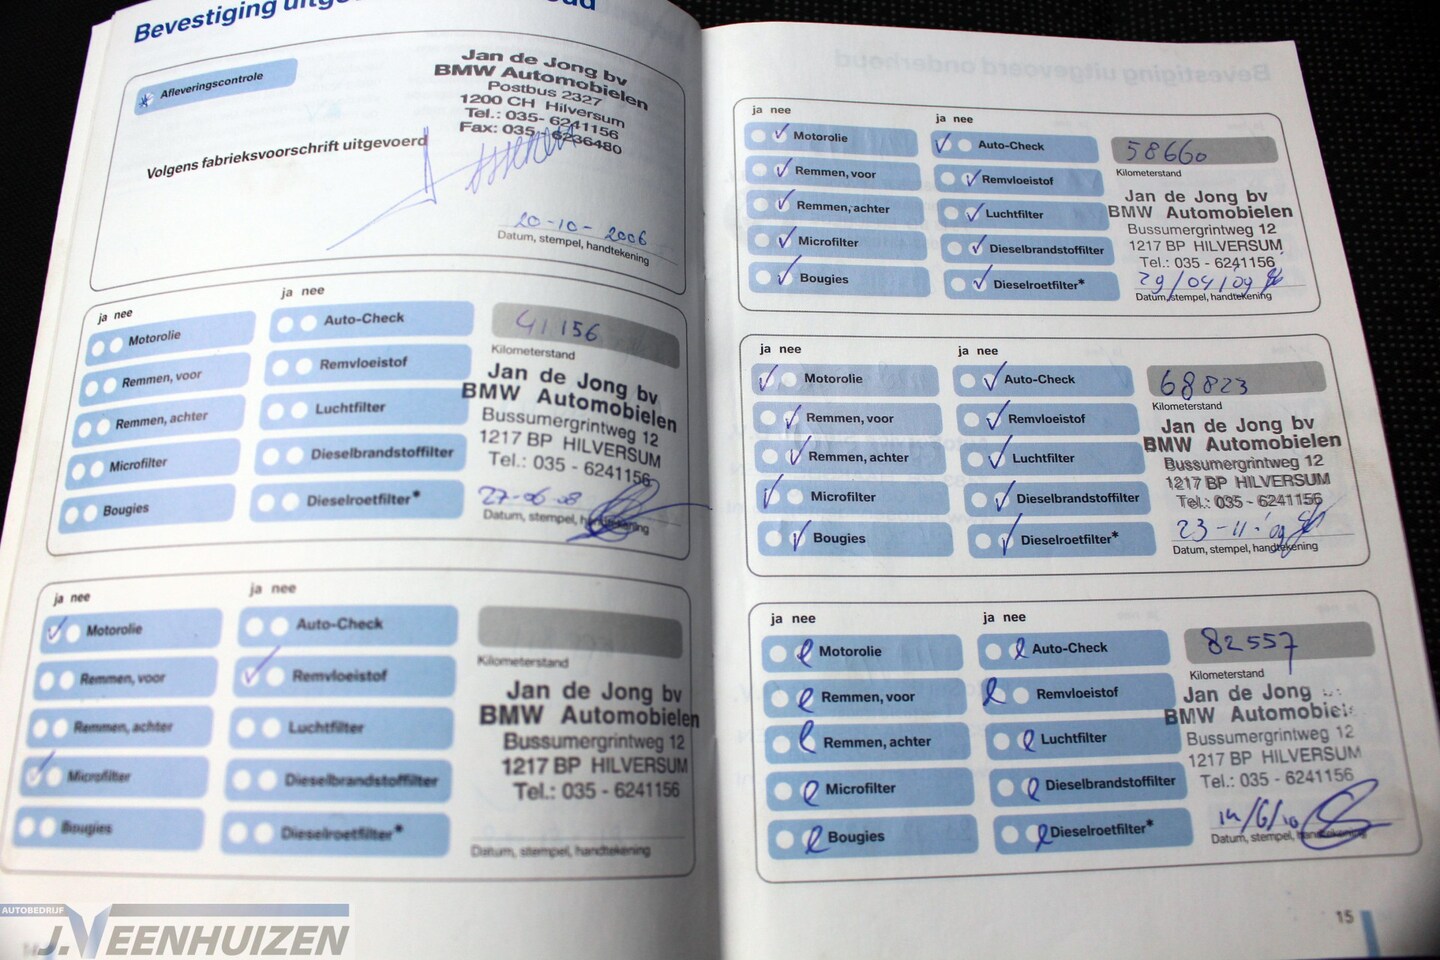 Bevestiging
Afleveringscontrole
Volgens fabrieksvoorschrift uitgevoerd
Jan de Jong bv
BMW Automobielen
Postbus 2327
1200 CH Hilversum
Tel.: 035- 6241156
Fax: 035- 6236480
20-10-2006
Datum, stempel, handtekening
ja nee
Motorolie
Remmen, voor
Remmen, achter
Microfilter
Bougies
ja nee
Auto-Check
Remvloeistof
Luchtfilter
Dieselbrandstoffilter
Dieselroetfilter*
41156
Kilometerstand
Jan de Jong bv
BMW Automobielen
Bussumergrintweg 12
1217 BP HILVERSUM
Tel.: 035 - 6241156
27-06-08
Datum, stempel, handtekening
ja nee
Motorolie
Remmen, voor
Remmen, achter
Microfilter
Bougies
ja nee
Auto-Check
Remvloeistof
Luchtfilter
Dieselbrandstoffilter
Dieselroetfilter*
Kilometerstand
Jan de Jong bv
BMW Automobielen
Bussumergrintweg 12
1217 BP HILVERSUM
Tel.: 035 - 6241156
Datum, stempel, handtekening
ja nee
Motorolie
Remmen, voor
Remmen, achter
Microfilter
Bougies
ja nee
Auto-Check
Remvloeistof
Luchtfilter
Dieselbrandstoffilter
Dieselroetfilter*
58660
Kilometerstand
Jan de Jong bv
BMW Automobielen
Bussumergrintweg 12
1217 BP HILVERSUM
Tel.: 035 - 6241156
29/04/09
Datum, stempel, handtekening
ja nee
Motorolie
Remmen, voor
Remmen, achter
Microfilter
Bougies
ja nee
Auto-Check
Remvloeistof
Luchtfilter
Dieselbrandstoffilter
Dieselroetfilter*
68823
Kilometerstand
Jan de Jong bv
BMW Automobielen
Bussumergrintweg 12
1217 BP HILVERSUM
Tel.: 035 - 6241156
23-11-'09
Datum, stempel, handtekening
ja nee
Motorolie
Remmen, voor
Remmen, achter
Microfilter
Bougies
ja nee
Auto-Check
Remvloeistof
Luchtfilter
Dieselbrandstoffilter
Dieselroetfilter*
82557
Kilometerstand
Jan de Jong
BMW Automobiel
Bussumergrintweg 12
1217 BP HILVERSUM
Tel.: 035 - 6241156
14/6/10
Datum, stempel, handtekening
15
AUTOBEDRIJF
J. VEENHUIZEN